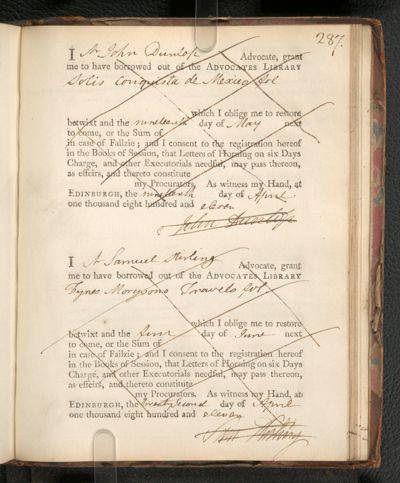 287.
I A John Dunlop Advocate, grant
me to have borrowed out of the ADVOCATES LIBRARY
Solis Conquista de Mexico fol
which I oblige me to restore
betwixt and the nineteenth day of May next
to come, or the Sum of
in case of Failzie; and I consent to the registration hereof
in the Books of Session, that Letters of Horning on six Days
Charge, and other Executorials needful, may pass thereon,
as effeirs, and thereto constitute
my Procurators. As witness my Hand, at
EDINBURGH, the nineteenth day of April
one thousand eight hundred and eleven
John Dunlop
I A Samuel Stirling Advocate, grant
me to have borrowed out of the ADVOCATES LIBRARY
Fynes Morysons Travels fol
which I oblige me to restore
betwixt and the day of June next
to come, or the Sum of
in case of Failzie; and I consent to the registration hereof
in the Books of Session, that Letters of Horning on six Days
Charge, and other Executorials needful, may pass thereon,
as effeirs, and thereto constitute
my Procurators. As witness my Hand, at
EDINBURGH, the twenty second day of April
one thousand eight hundred and eleven
Stirling